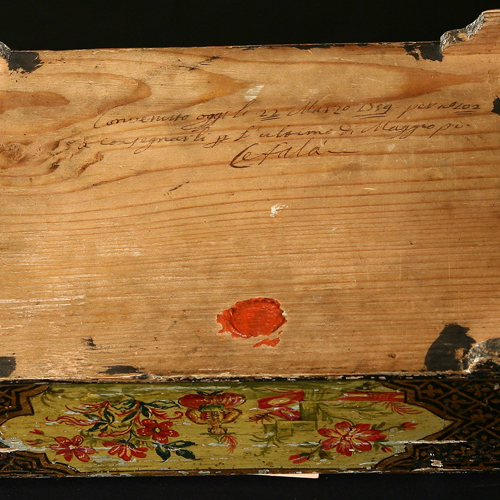 Convenuto oggi li 22 Marzo 1759 per
consegnarli p l'ultimo di Maggio
Cefalá